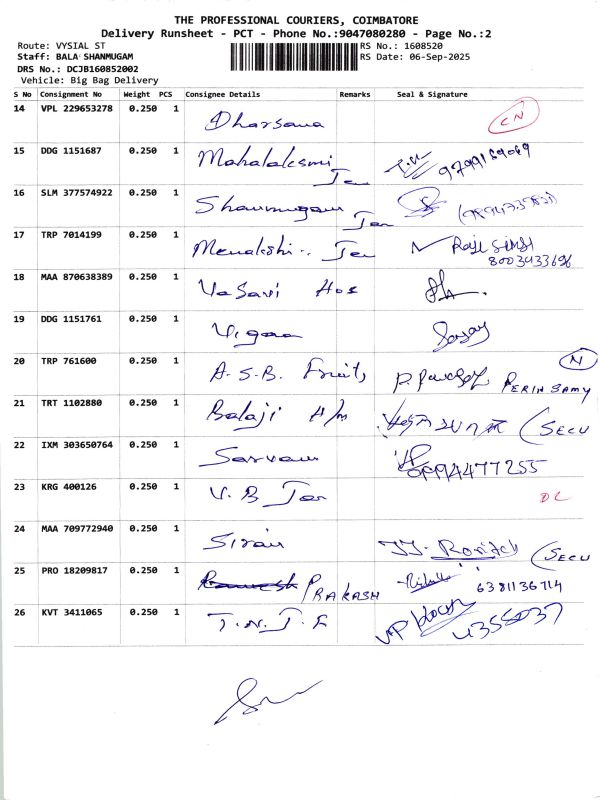 THE PROFESSIONAL COURIERS, COIMBATORE
Delivery Runsheet - PCT - Phone No.:9047080280 - Page No.:2
Route: VYSIAL ST RS No.: 1608520
Staff: BALA SHANMUGAM RS Date: 06-Sep-2025
DRS No.: DCJB160852002
Vehicle: Big Bag Delivery
S No Consignment No Weight PCS Consignee Details Remarks Seal & Signature
14 VPL 229653278 0.250 1 Dharsana CN
15 DDG 1151687 0.250 1 Mahalaksmi Jew
16 SLM 377574922 0.250 1 Shanmugam Jew
17 TRP 7014199 0.250 1 Menakshi Jew Raje Singh
8003433696
18 MAA 870638389 0.250 1 Vasavi Hos
19 DDG 1151761 0.250 1 Vigna Sanjay
20 TRP 761600 0.250 1 A.S.B. Fruits N
PERIN SAMY
21 TRT 1102880 0.250 1 Balaji H/m (SECU
22 IXM 303650764 0.250 1 Sarvam
VP 9994477255
23 KRG 400126 0.250 1 V.B Jew DL
24 MAA 709772940 0.250 1 Siran (SECU
25 PRO 18209817 0.250 1 PRAKASH 6381136714
26 KVT 3411065 0.250 1 T.N.J.F